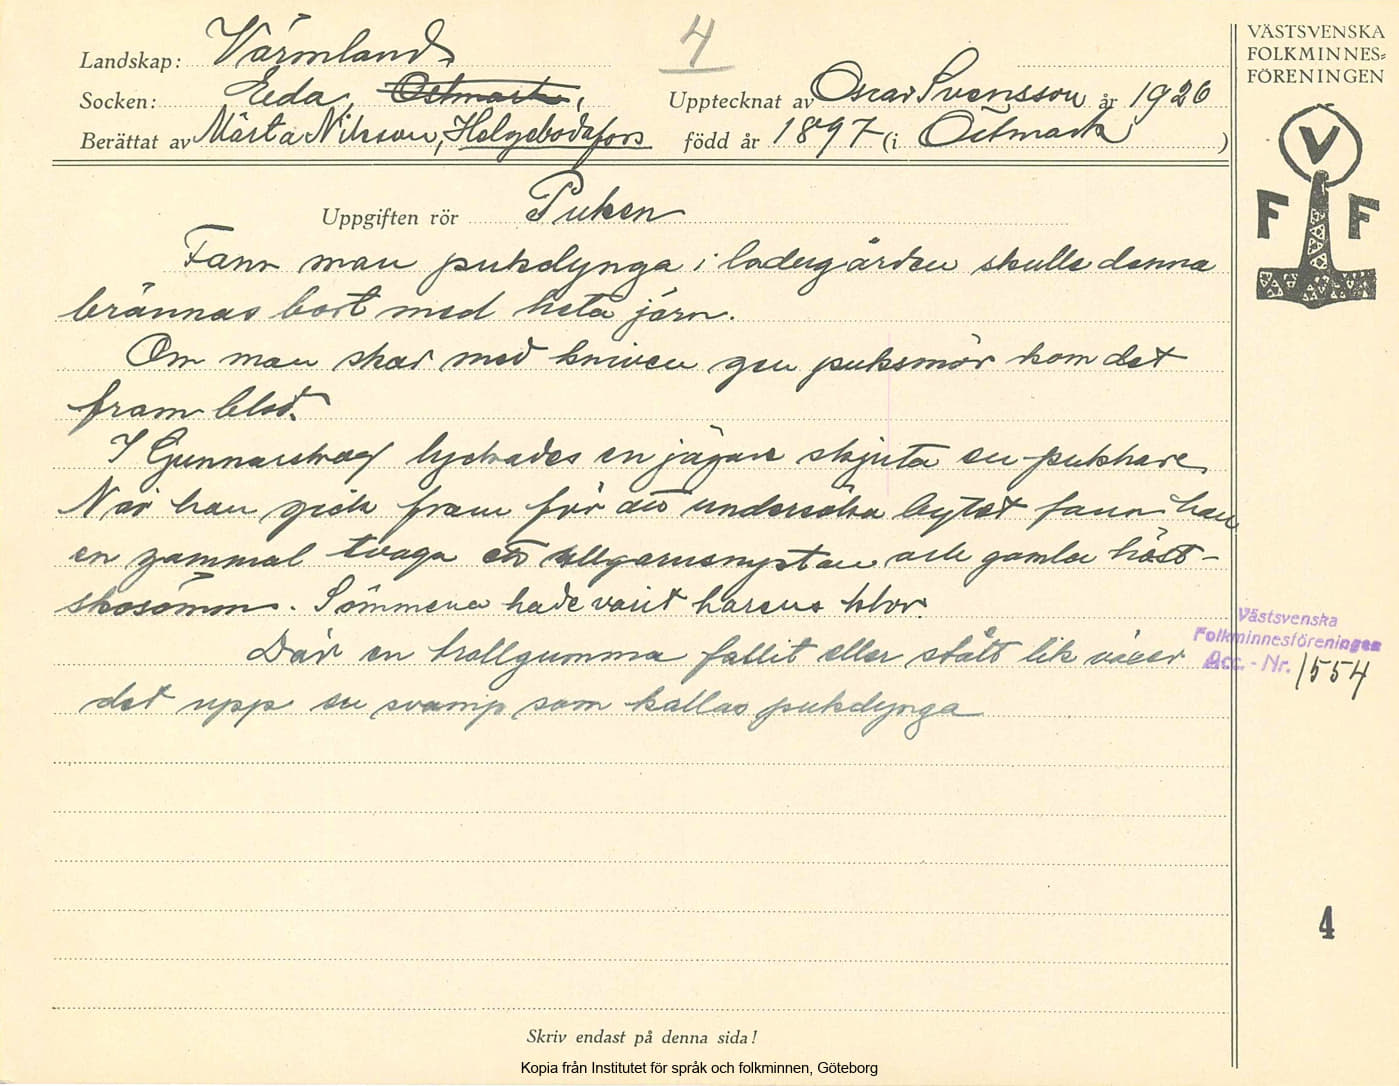 4
VÄSTSVENSKA
FOLKMINNES=
FÖRENINGEN
V
F F
Landskap: Värmland
Socken: Eda, Östmark,
Upptecknat av Oscar Svensson år 1926
Berättat av Märta Nilsson, Helgebodafors född år 1897 (i Östmark )
Uppgiften rör Puken
Fann man pukdynga i ladugården skulle denna
brännas bort med heta järn.
Om man skar med kniven gen puksmör kom det
fram blod.
I Gunnarskog lyckades en jägare skjuta en pukhare.
När han gick fram för att undersöka bytet fann han
en gammal tvaga ett ullgarnsnystan och gamla häst-
skosömm. Sömmena hade varit harens klor.
Där en trollgumma fallit eller stått lik växer
det upp en svamp som kallas pukdynga
Västsvenska
Folkminnesföreningen
Acc. - Nr. 1554
4
Skriv endast på denna sida!
Kopia från Institutet för språk och folkminnen, Göteborg